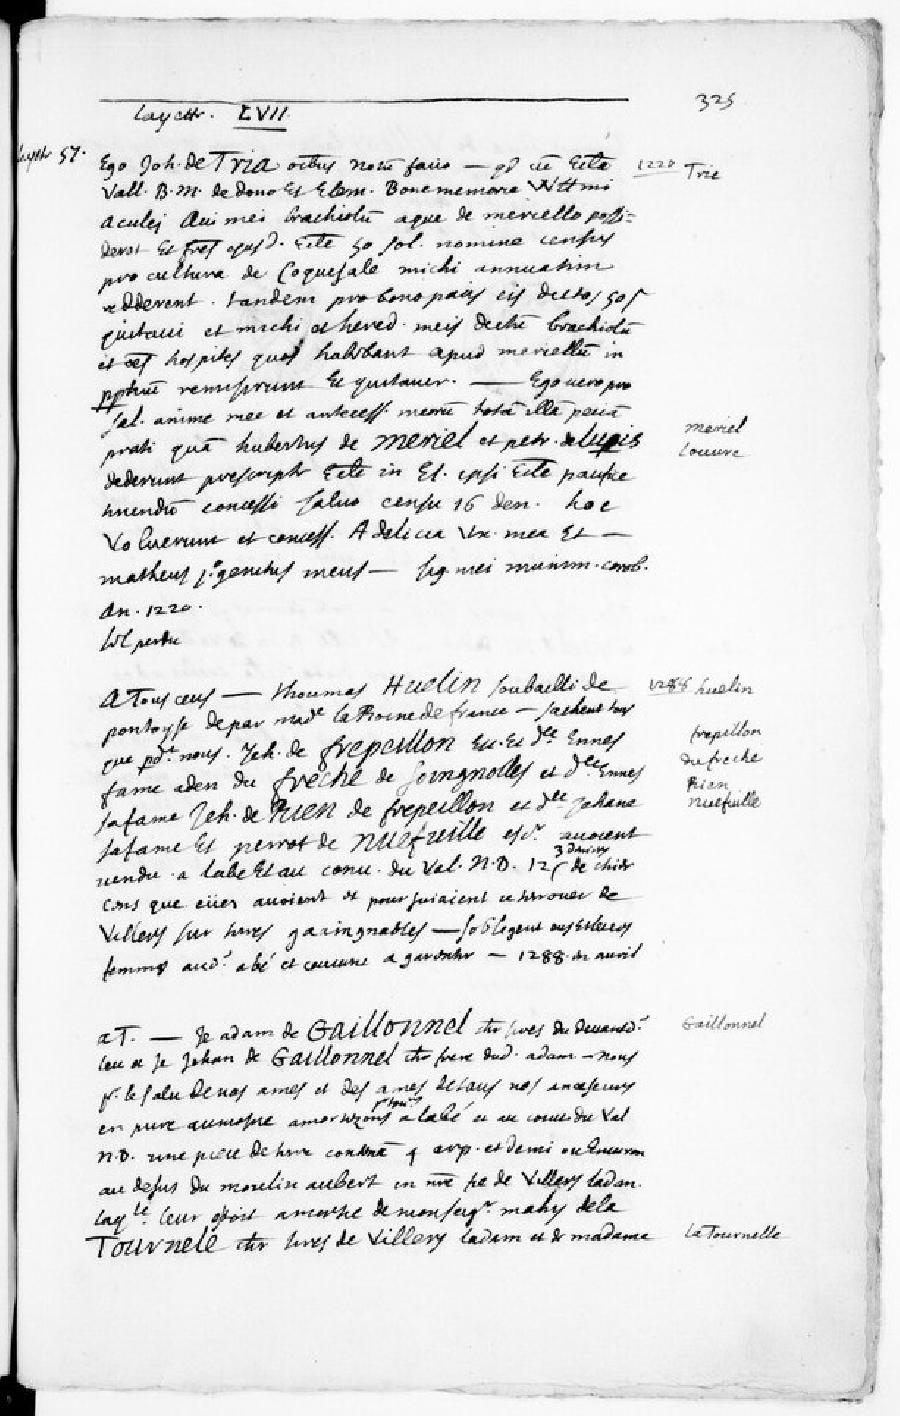 325
Layette. LVII
Layette 57.
Ego Joh. de Tria omibs notū facio — qd cū Eccle 1220 Trie
Vall. B. M. de dono Et Elem. Bone memorie Willmi
Aculei Aui mei brachiolū aque de meriello possi=
derat Et fres ejusd. Eccle 50 sol. nomine census
pro cultura de Coquesale michi annuatim
redderent. tandem pro bono pacis eis dictos 50 s
quitaui et michi et hered. meis dictū brachiolū
et hospites quos habebant apud meriellū in
ppetuū remiserunt Et quitauer. — Ego uero pro
sal. anime mee et antecess. meorū totā illā peciā
prati quā hubertus de Meriel et petr. de Lupis meriel
dederunt prescripte Eccle in El. ipsi Eccle pacifice Louvre
tenendū concessi saluo censu 16 den. hoc
Voluerunt et concess. Adelicia Vx. mea Et —
matheus p.genitus meus — sig. mei munim. corob.
An. 1220.
scel perdu
A Tous ceus — thoumas Huelin soubailli de 1288 huelin
pontoyse de par made la Roine de france — sachent tos
que pdt nous. Jeh. de frepeillon Esc. Et dlle Ennes frepillon
fame aden du freche de Goingnolles et dlle Ennes du freche
sa fame Jeh. de Rien de frepeillon et dlle Jehane Rien
sa fame Et perrot de Nuefuille escr. auoient nuefuille
uendu a labé Et au conu. du Val N.D. 12 s 3 deniers de chier
cens que eues auoient et pour suiaient a terrouer de
Villers sur terres gaaingnables — soblegent eus Et leurs
femmes aud. abé et couuent a garandir — 1288. en auril
aT. — Je adam de Gaillonnel chr sires du deuantd. Gaillonnel
leu et Je Jehan de Gaillonnel chr frere dud. adam — nous
pr. le salu de nos ames et des ames de tous nos ancesseurs
en pure aumosne amortizons a labé et au couu. du Val
N.D. une piece de terre contenā 4 arp. et demi ou Enuiron
au desus du moulin aubert en nre fié de Villers ladan.
laqle. leur estoit amortie de monseigr. mahy de la
Tournele chr sires de Villers ladam et de madame La Tournelle